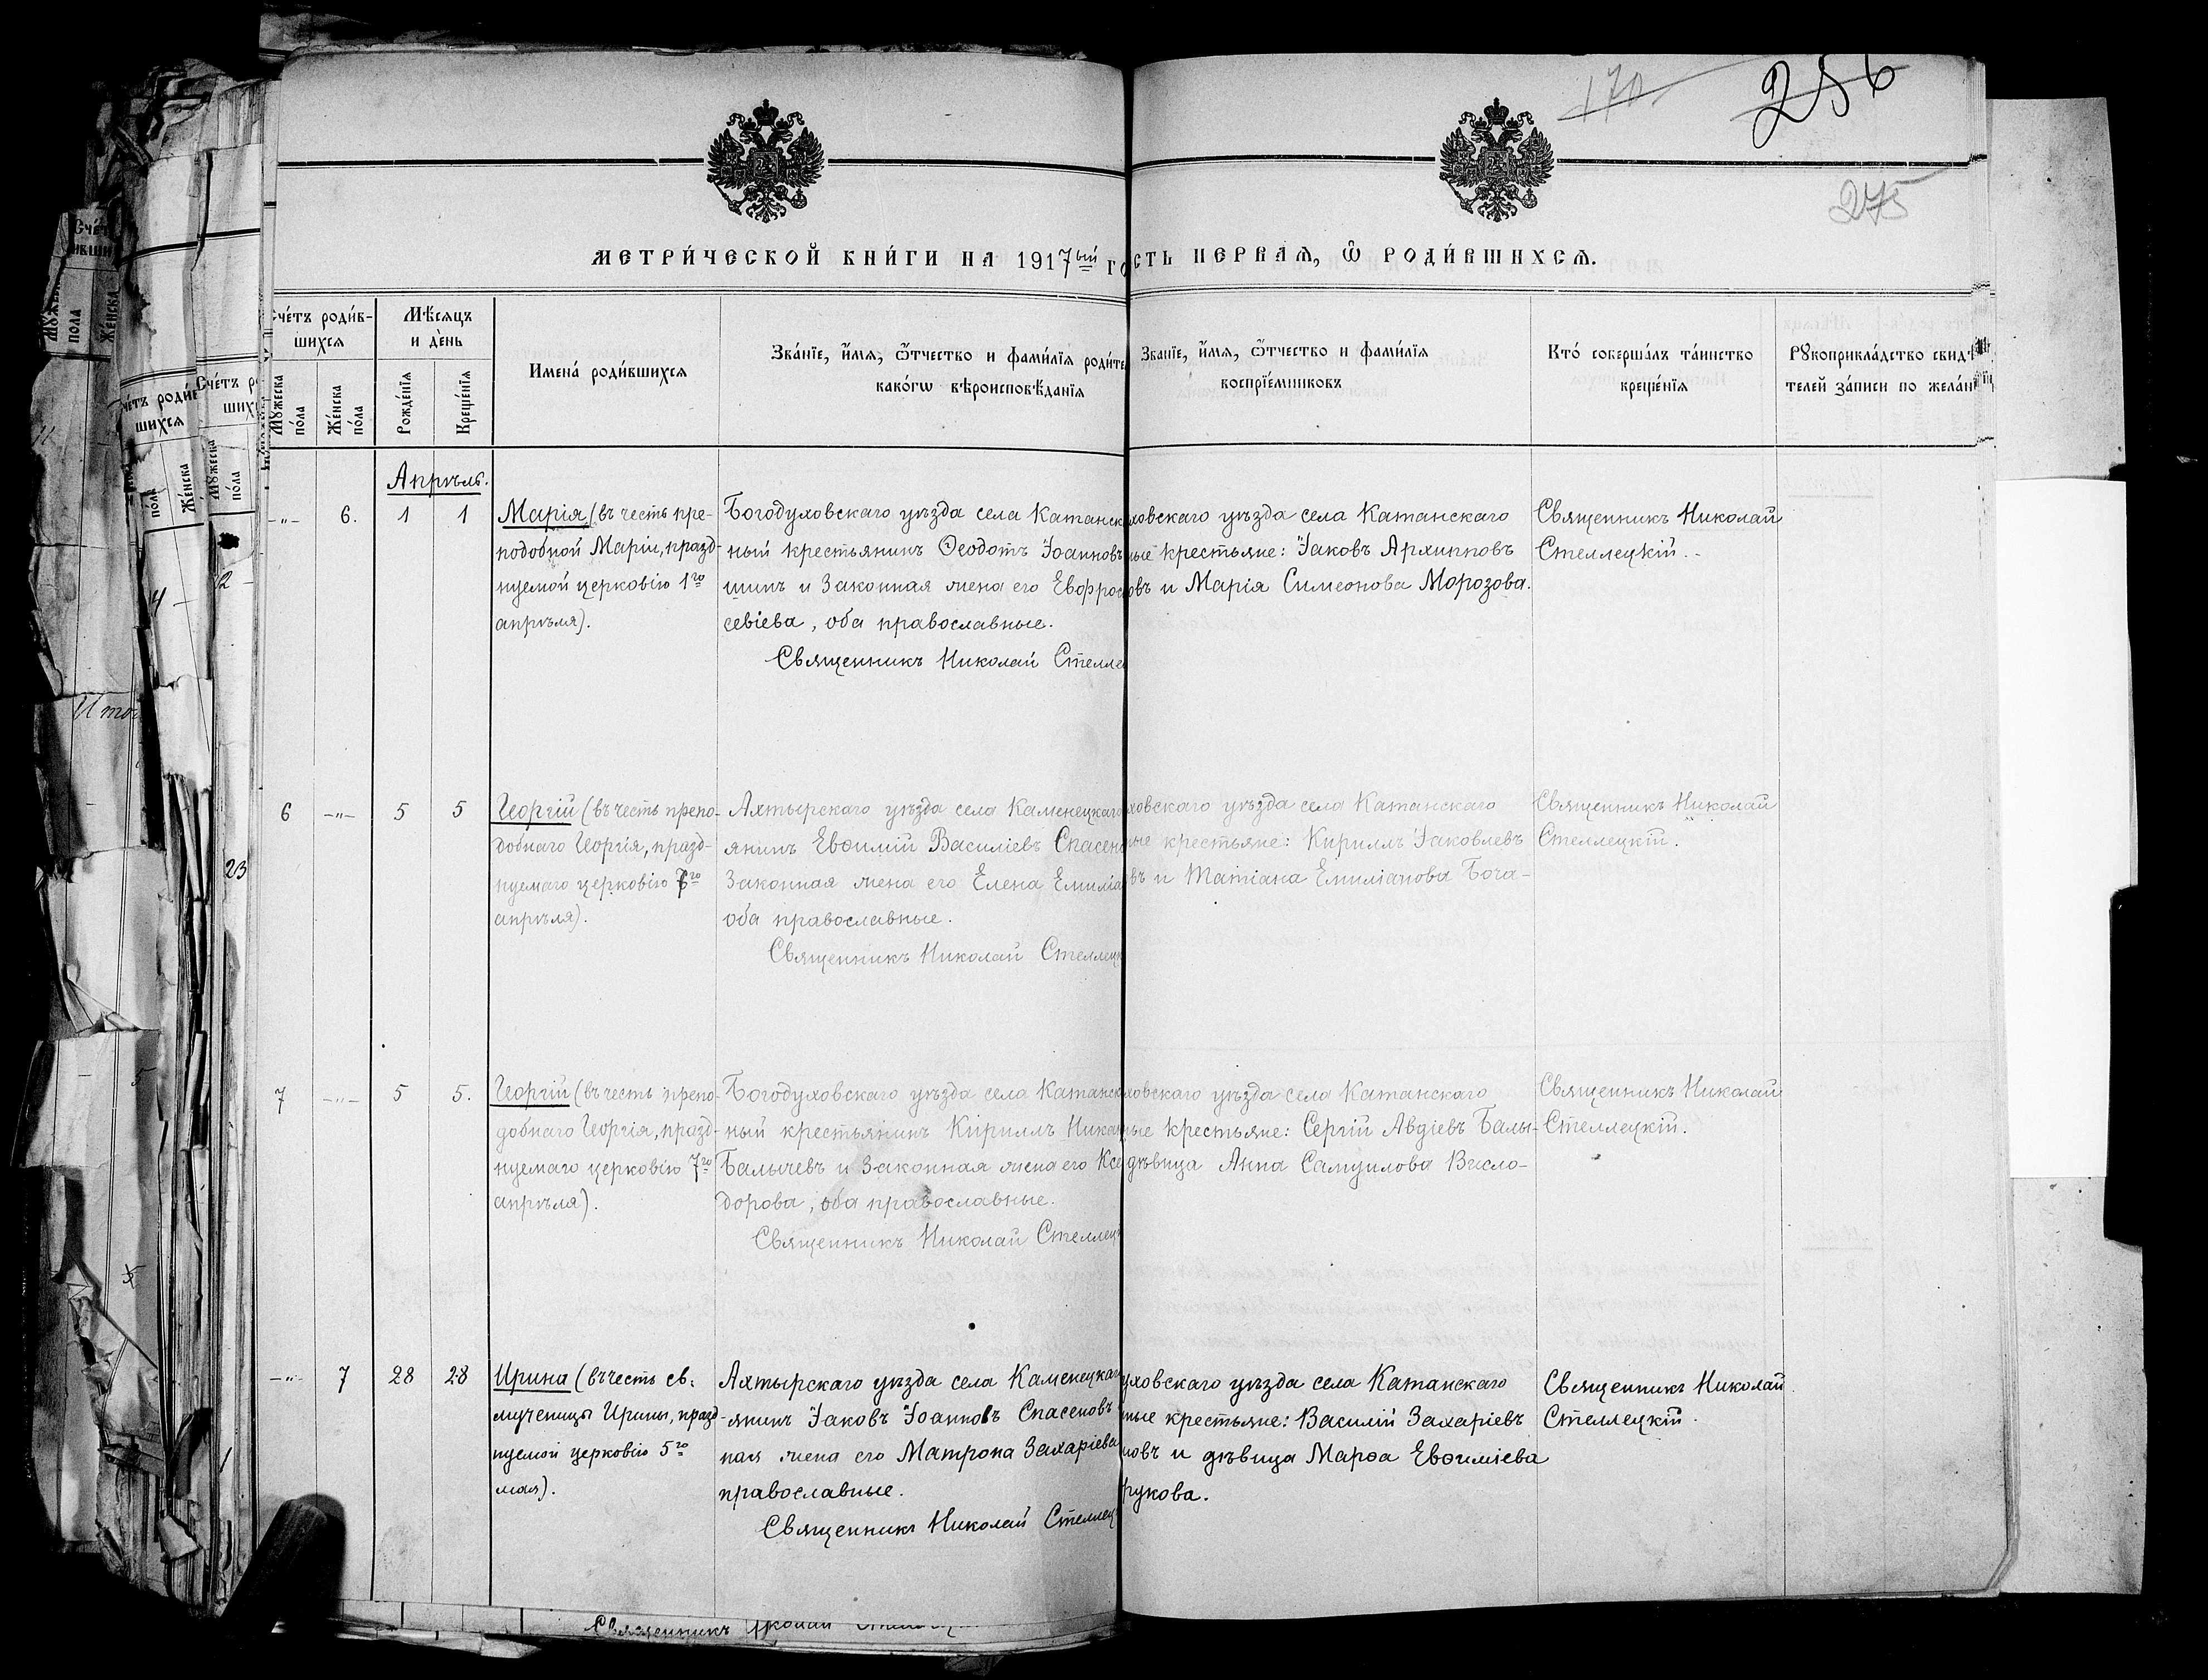 170
256
275
МЕТРИ́ЧЕСКОЙ КНИ́ГИ НА 1917ый
СТЬ ПЕРВАѦ, Ѿ РОДИ́ВШИХСѦ.
Сче́тъ роди́в-
шихсѧ
Мѣ́сѧцъ
и де́нь
Мꙋ́жеска
по́ла
Же́нска
по́ла
Рожде́нїѧ
Креще́нїѧ
Имена́ роди́вшихсѧ
Зва́нїе, и́мѧ, ѻ́тчество и фами́лїѧ роди́те
како́гѡ вѣроисповѣ́данїѧ
Зва́нїе, и́мѧ, ѻ́тчество и фами́лїѧ
воспрїе́мниковъ
Кто́ соверша́лъ та́инство
креще́нїѧ
Рꙋкоприкла́дство свид
телей за́писи по жела́н
Апрѣль.
-"- 6. 1 1
Марія (въ честь пре-
подобной Маріи, празд-
нуемой церковію 1го
апрѣля).
Богодуховскаго уѣзда села Катанск
ный крестьянинъ Ѳеодотъ Іоанновъ
шинъ и законная жена его Евфрос
севіева, оба православные.
Священникъ Николай Стелле
ховскаго уѣзда села Катанскаго
ные крестьяне: Іаковъ Архипповъ
овъ и Марія Симеонова Морозова.
Священникъ Николай
Стеллецкій.
6 -"- 5 5
Георгій (въ честь препо-
добнаго Георгія, празд-
нуемаго церковію 7го
апрѣля).
Ахтырскаго уѣзда села Каменецкаго
янинъ Евѳимій Василіевъ Спасен
законная жена его Елена Емиліа
оба православные.
Священникъ Николай Стеллец
ховскаго уѣзда села Катанскаго
ные крестьяне: Кириллъ Іаковлевъ
въ и Татіана Емиліанова Бога-
Священникъ Николай
Стеллецкій.
7 -"- 5 5.
Георгій (въ честь препо-
добнаго Георгія, празд-
нуемаго церковію 7го
апрѣля).
Богодуховскаго уѣзда села Катанск
ный крестьянинъ Кириллъ Никан
Балычевъ и законная жена его Ксе
дорова, оба православные.
Священникъ Николай Стеллец
ховскаго уѣзда села Катанскаго
ные крестьяне: Сергій Авдіевъ Балы-
дѣвица Анна Самуилова Висло-
Священникъ Николай
Стеллецкій.
-"- 7 28 28
Ирина (въ честь св.
мученицы Ирины, празд-
нуемой церковію 5го
мая).
Ахтырскаго уѣзда села Каменецкаг
янинъ Іаковъ Іоанновъ Спасеновъ
ная жена его Матрона Захаріева
православные.
Священникъ Николай Стеллец
уховскаго уѣзда села Катанскаго
ные крестьяне: Василій Захаріевъ
новъ и дѣвица Марѳа Евѳиміева
рукова.
Священникъ Николай
Стеллецкій.
Священникъ